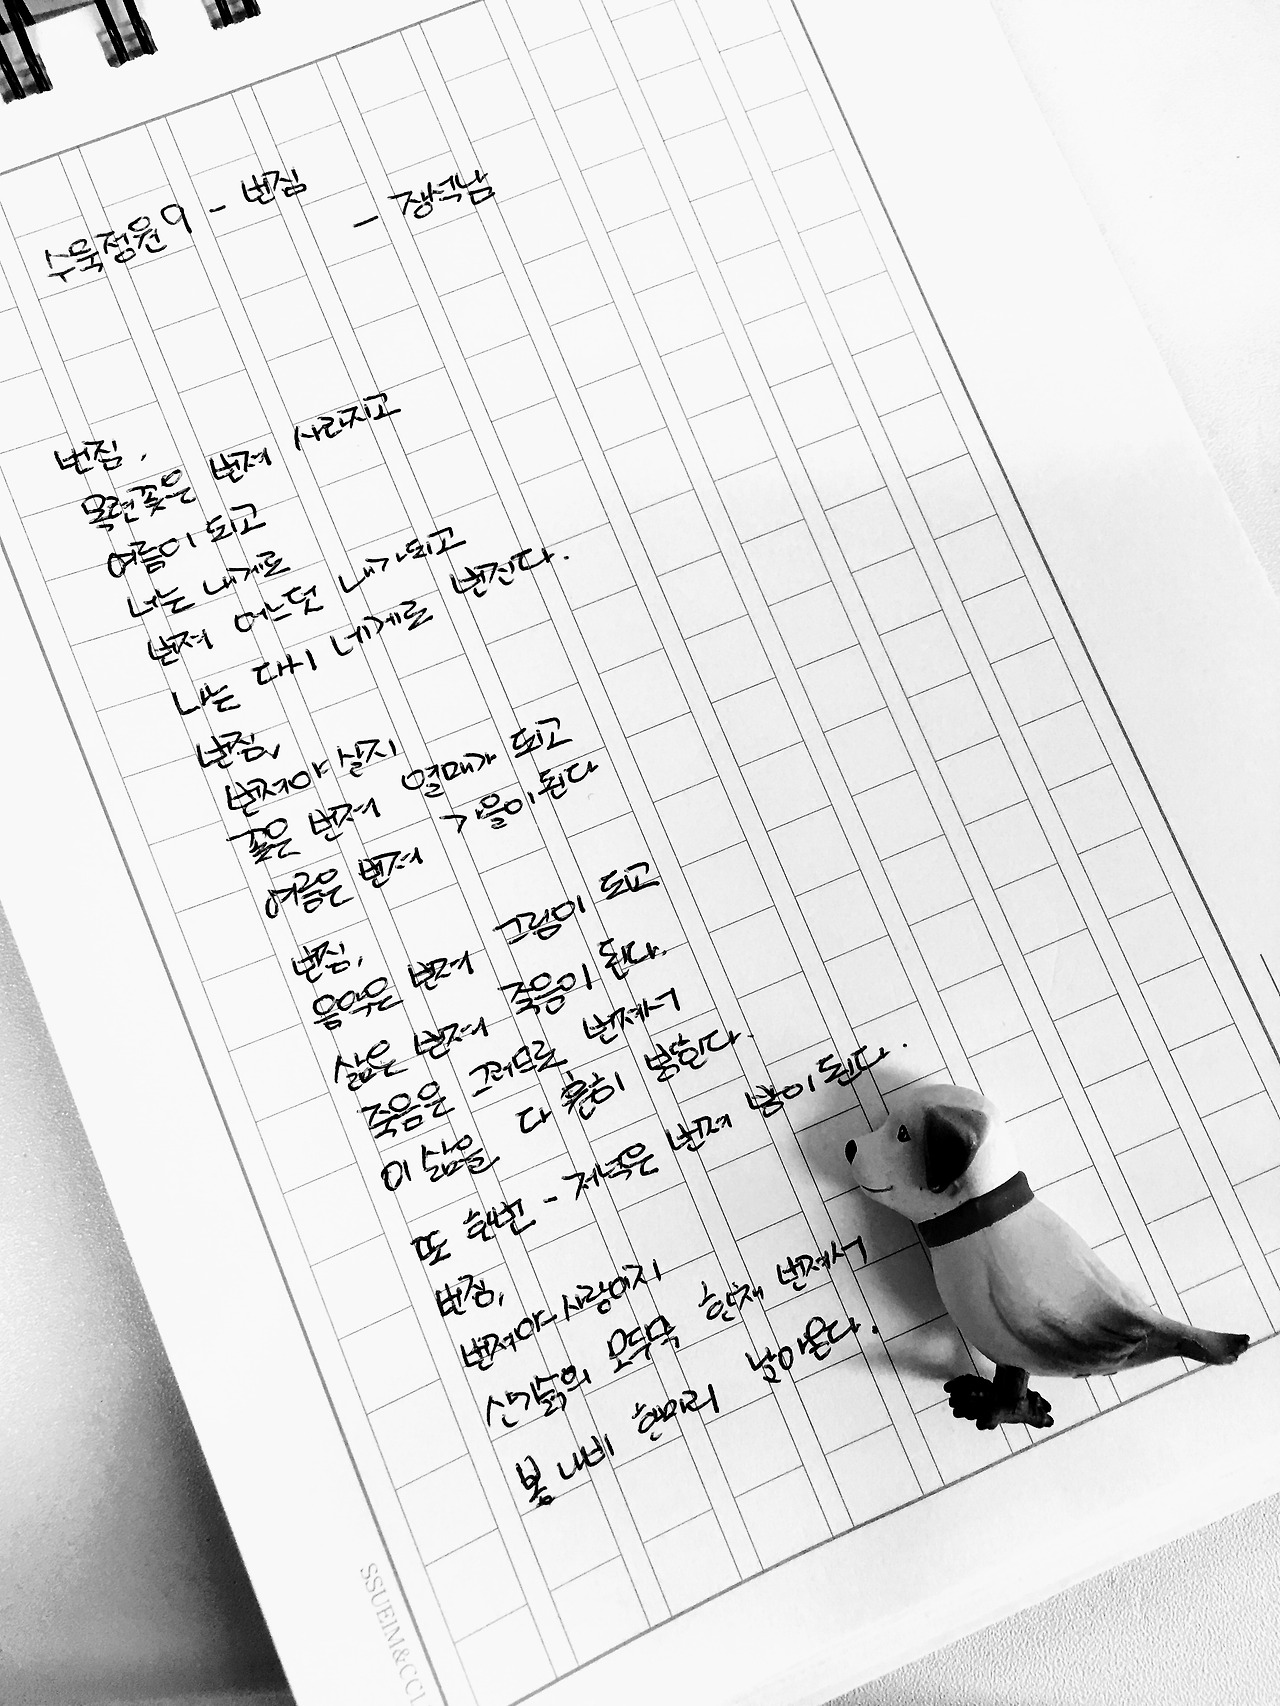 수묵정원9 - 번짐
- 장석남
번짐,
목련꽃은 번져 사라지고
여름이 되고
너는 내게로
번져 어느덧 내가되고
나는 다시 네게로 번진다.
번짐,
번져야 살지
꽃은 번져 열매가 되고
여름은 번져 가을이된다
번짐,
음악은 번져 그림이 되고
삶은 번져 죽음이 된다.
죽음은 그러므로 번져서
이 삶을 다 환히 밝힌다.
또 한번 - 저녁은 번져 밤이 된다.
번짐,
번져야 사랑이지
산기슭의 오두막 한채 번져서
봄 나비 한마리 날아온다.
SSUEIM&CCL